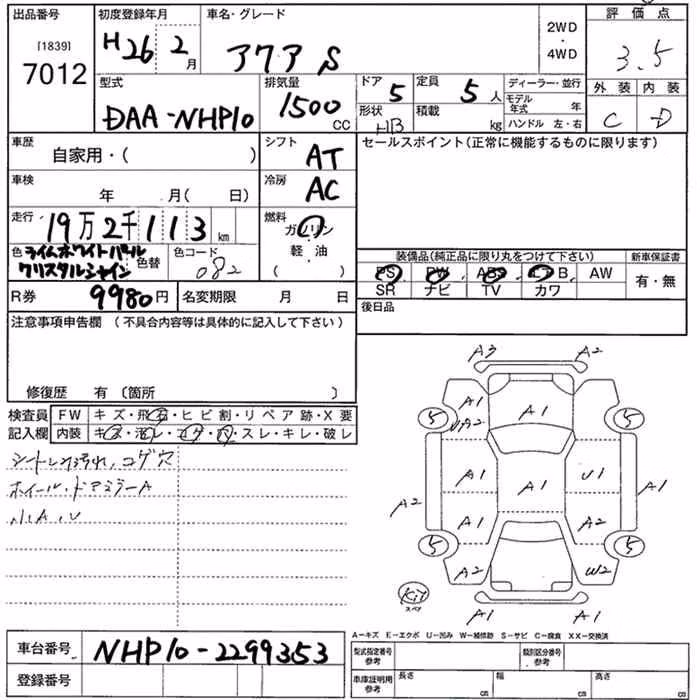 出品番号 初度登録年月 車名・グレード 評価点
[1839] 7012 H26 2月 アクア S 2WD・4WD 3.5
型式 排気量 ドア 5 定員 5人 ディーラー・並行 外装 内装
DAA-NHP10 1500cc 形状 HB 積載 kg モデル年式 年 C D
ハンドル 左・右
車歴 自家用・( ) シフト AT セールスポイント(正常に機能するものに限ります)
車検 年 月( 日) 冷房 AC
走行 19万2千113km 燃料 ガソリン・軽油( )
色 ライムホワイトパール 色替 色コード 082 装備品(純正品に限り丸をつけて下さい) 新車保証書
クリスタルシャイン PS PW ABS エアB AW 有・無
R券 9980円 名変期限 月 日 SR ナビ TV カワ
後日品
注意事項申告欄(不具合内容等は具体的に記入して下さい)
修復歴 有〔箇所 〕
検査員 FW キズ・飛石・ヒビ割・リペア跡・X要
記入欄 内装 キズ・汚レ・コゲ・穴・スレ・キレ・破レ
シートレ汚れ、コゲ穴
ホイール・ドアミラーA
小A、U
A3 A2
5 A1 A1 5
UA2
A2 A1 A1 U1 A1
A1 A2
5 5
A2 W2
Kit
スペア
A1 A1
A−キズ E−エクボ U−凹み W−補修跡 S−サビ C−腐食 XX−交換済
車台番号 NHP10-2299353 型式指定番号 参考 類別区分番号 参考
登録番号 車庫証明用 参考 長さ cm 幅 cm 高さ cm